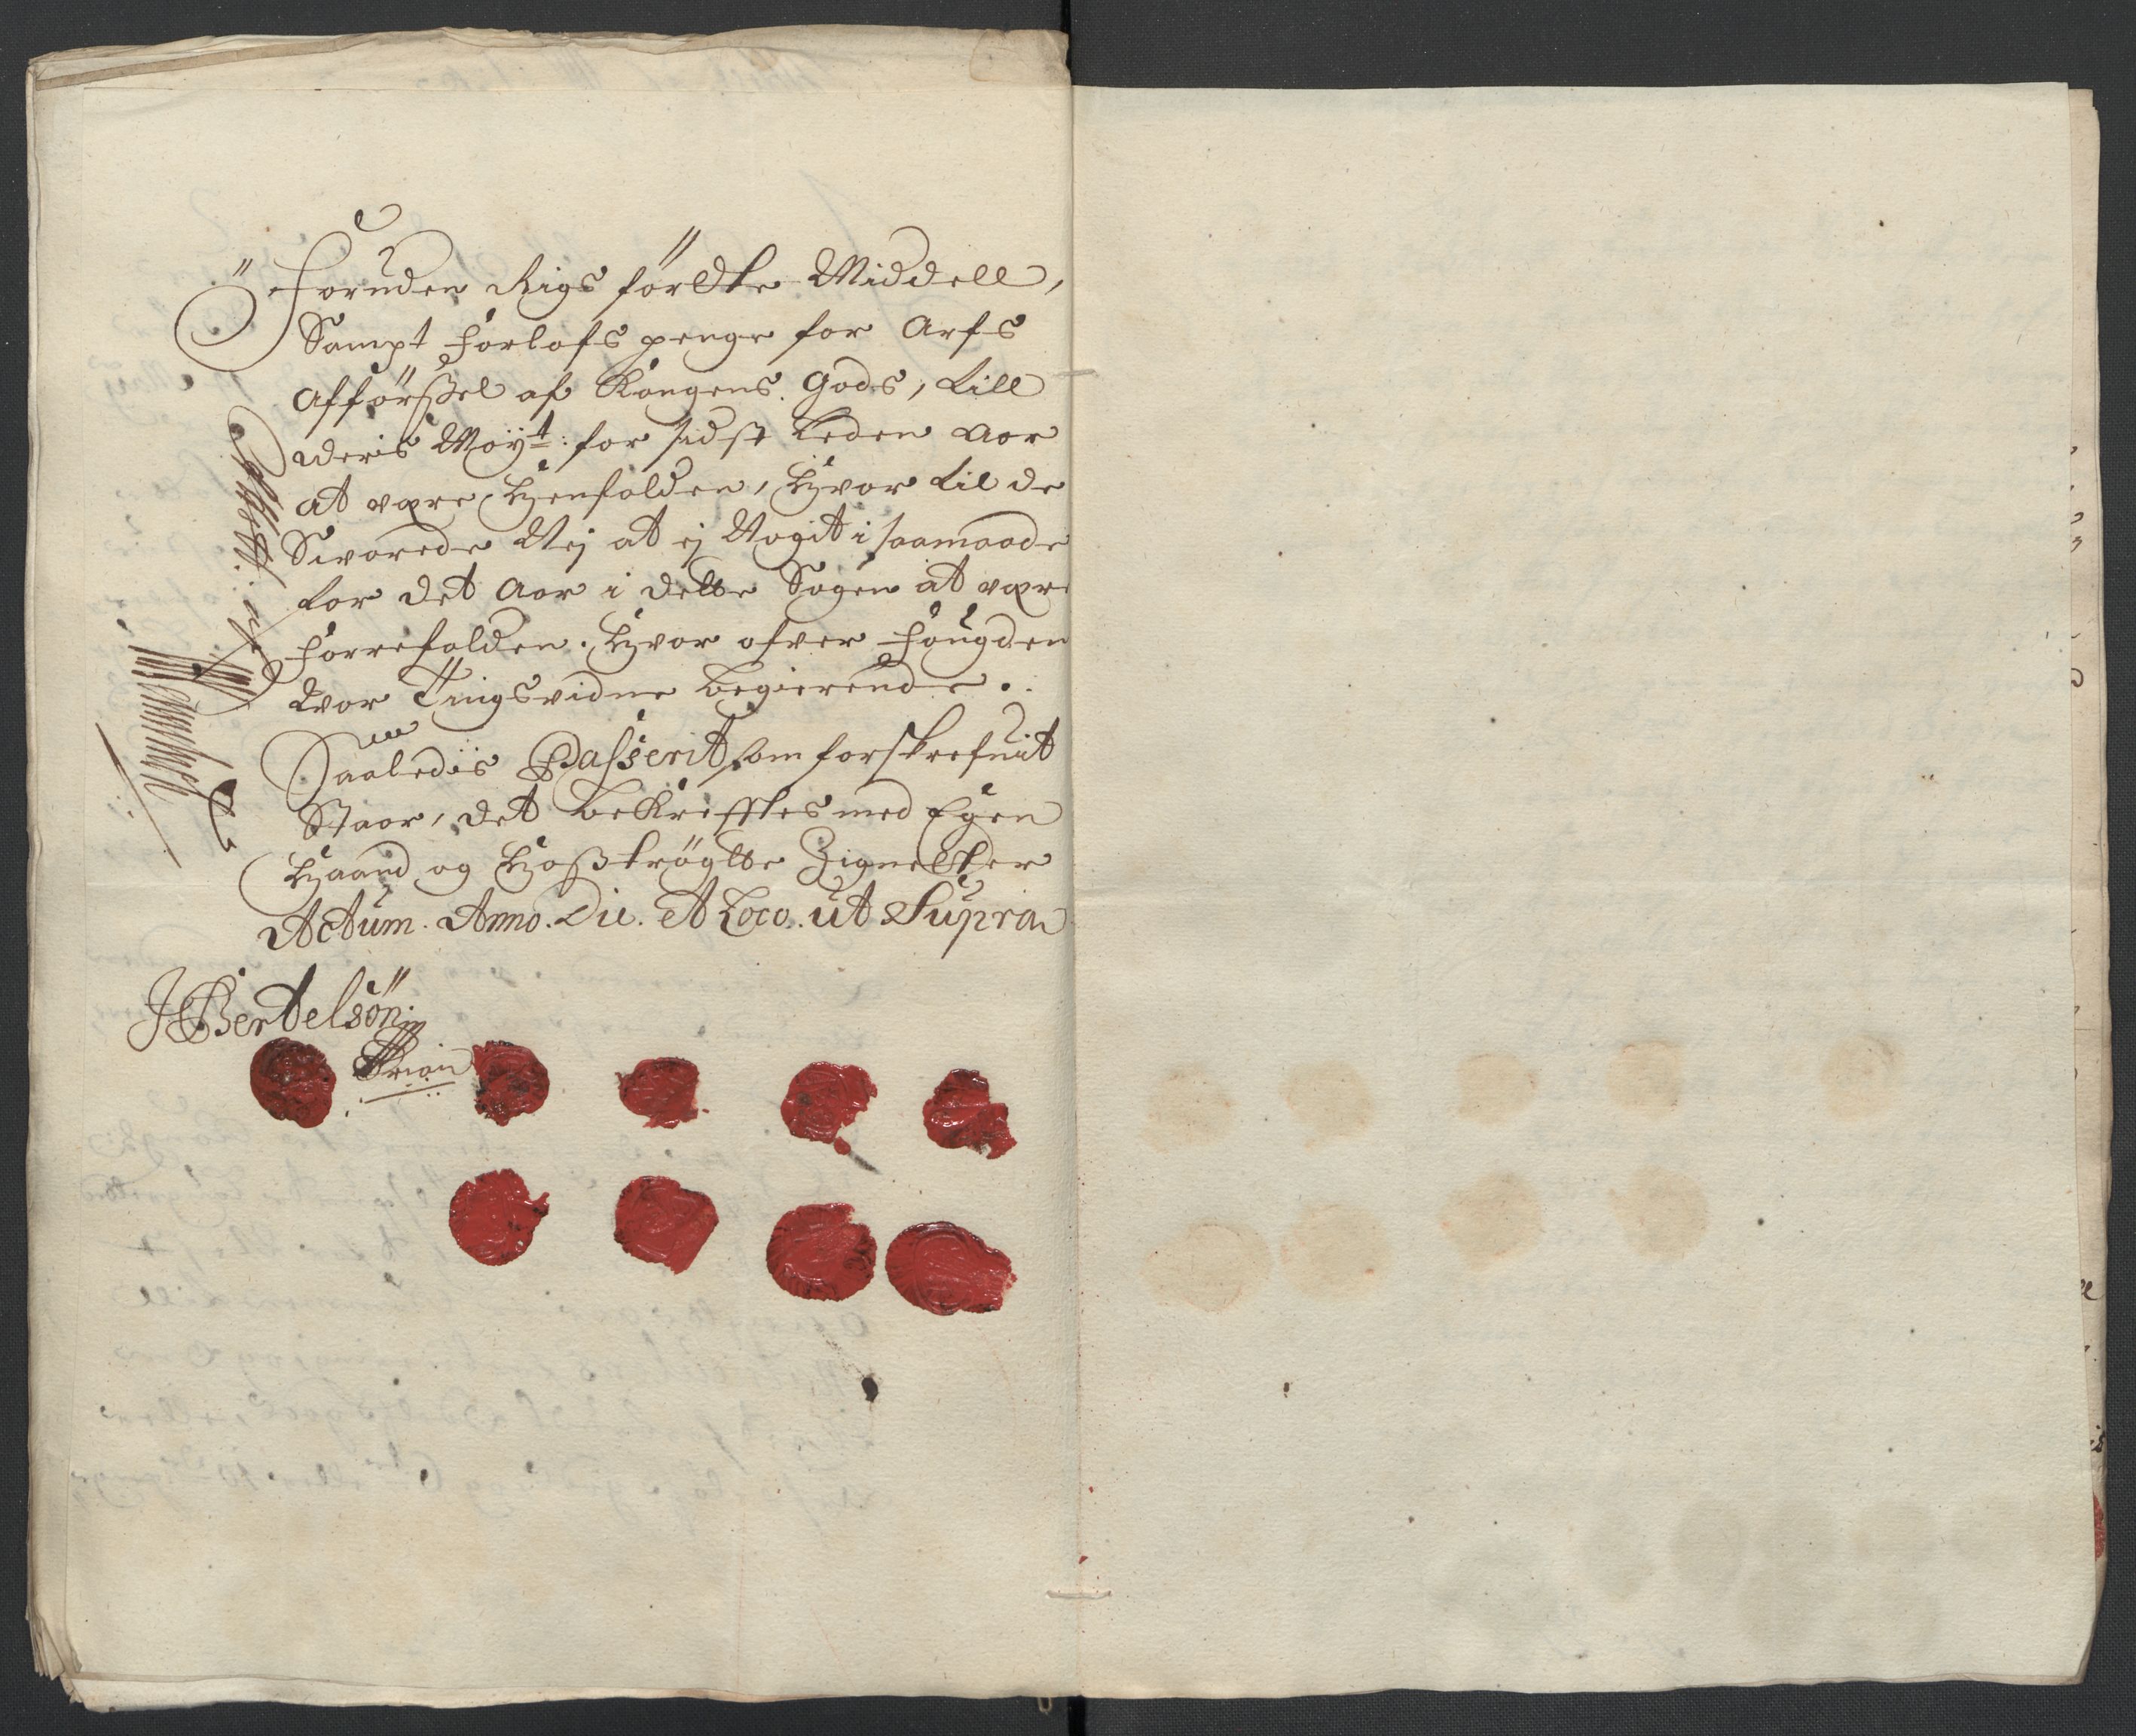 Foruden Rigs förschte Middell,
Sampt Forlofs penge for Arfs
Afförßel af Kongens Gods, till
deris Mayt: for sidst leden Aor
at være henfalden, hvor til de
Svarede Nej at ej Nogit i saamaade
for det Aor i dette Sogen at være
Forrefalden. hvor ofver Fougden
Vor Tingsvidne begierende.
Saaledis Passerit som forskrefuit
Staar, det bekrefftes med Egen
Haand og hoßtrögtte Zigneter
Actum. Anno. Die. Et Loco. ut Supra
JBertelsön: